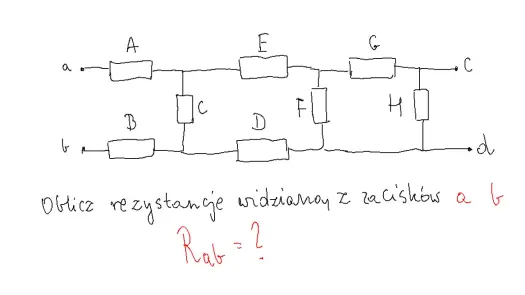 A E G
a c
C F H
B D
b d
Oblicz rezystancje widzianą z zacisków a b
Rab = ?